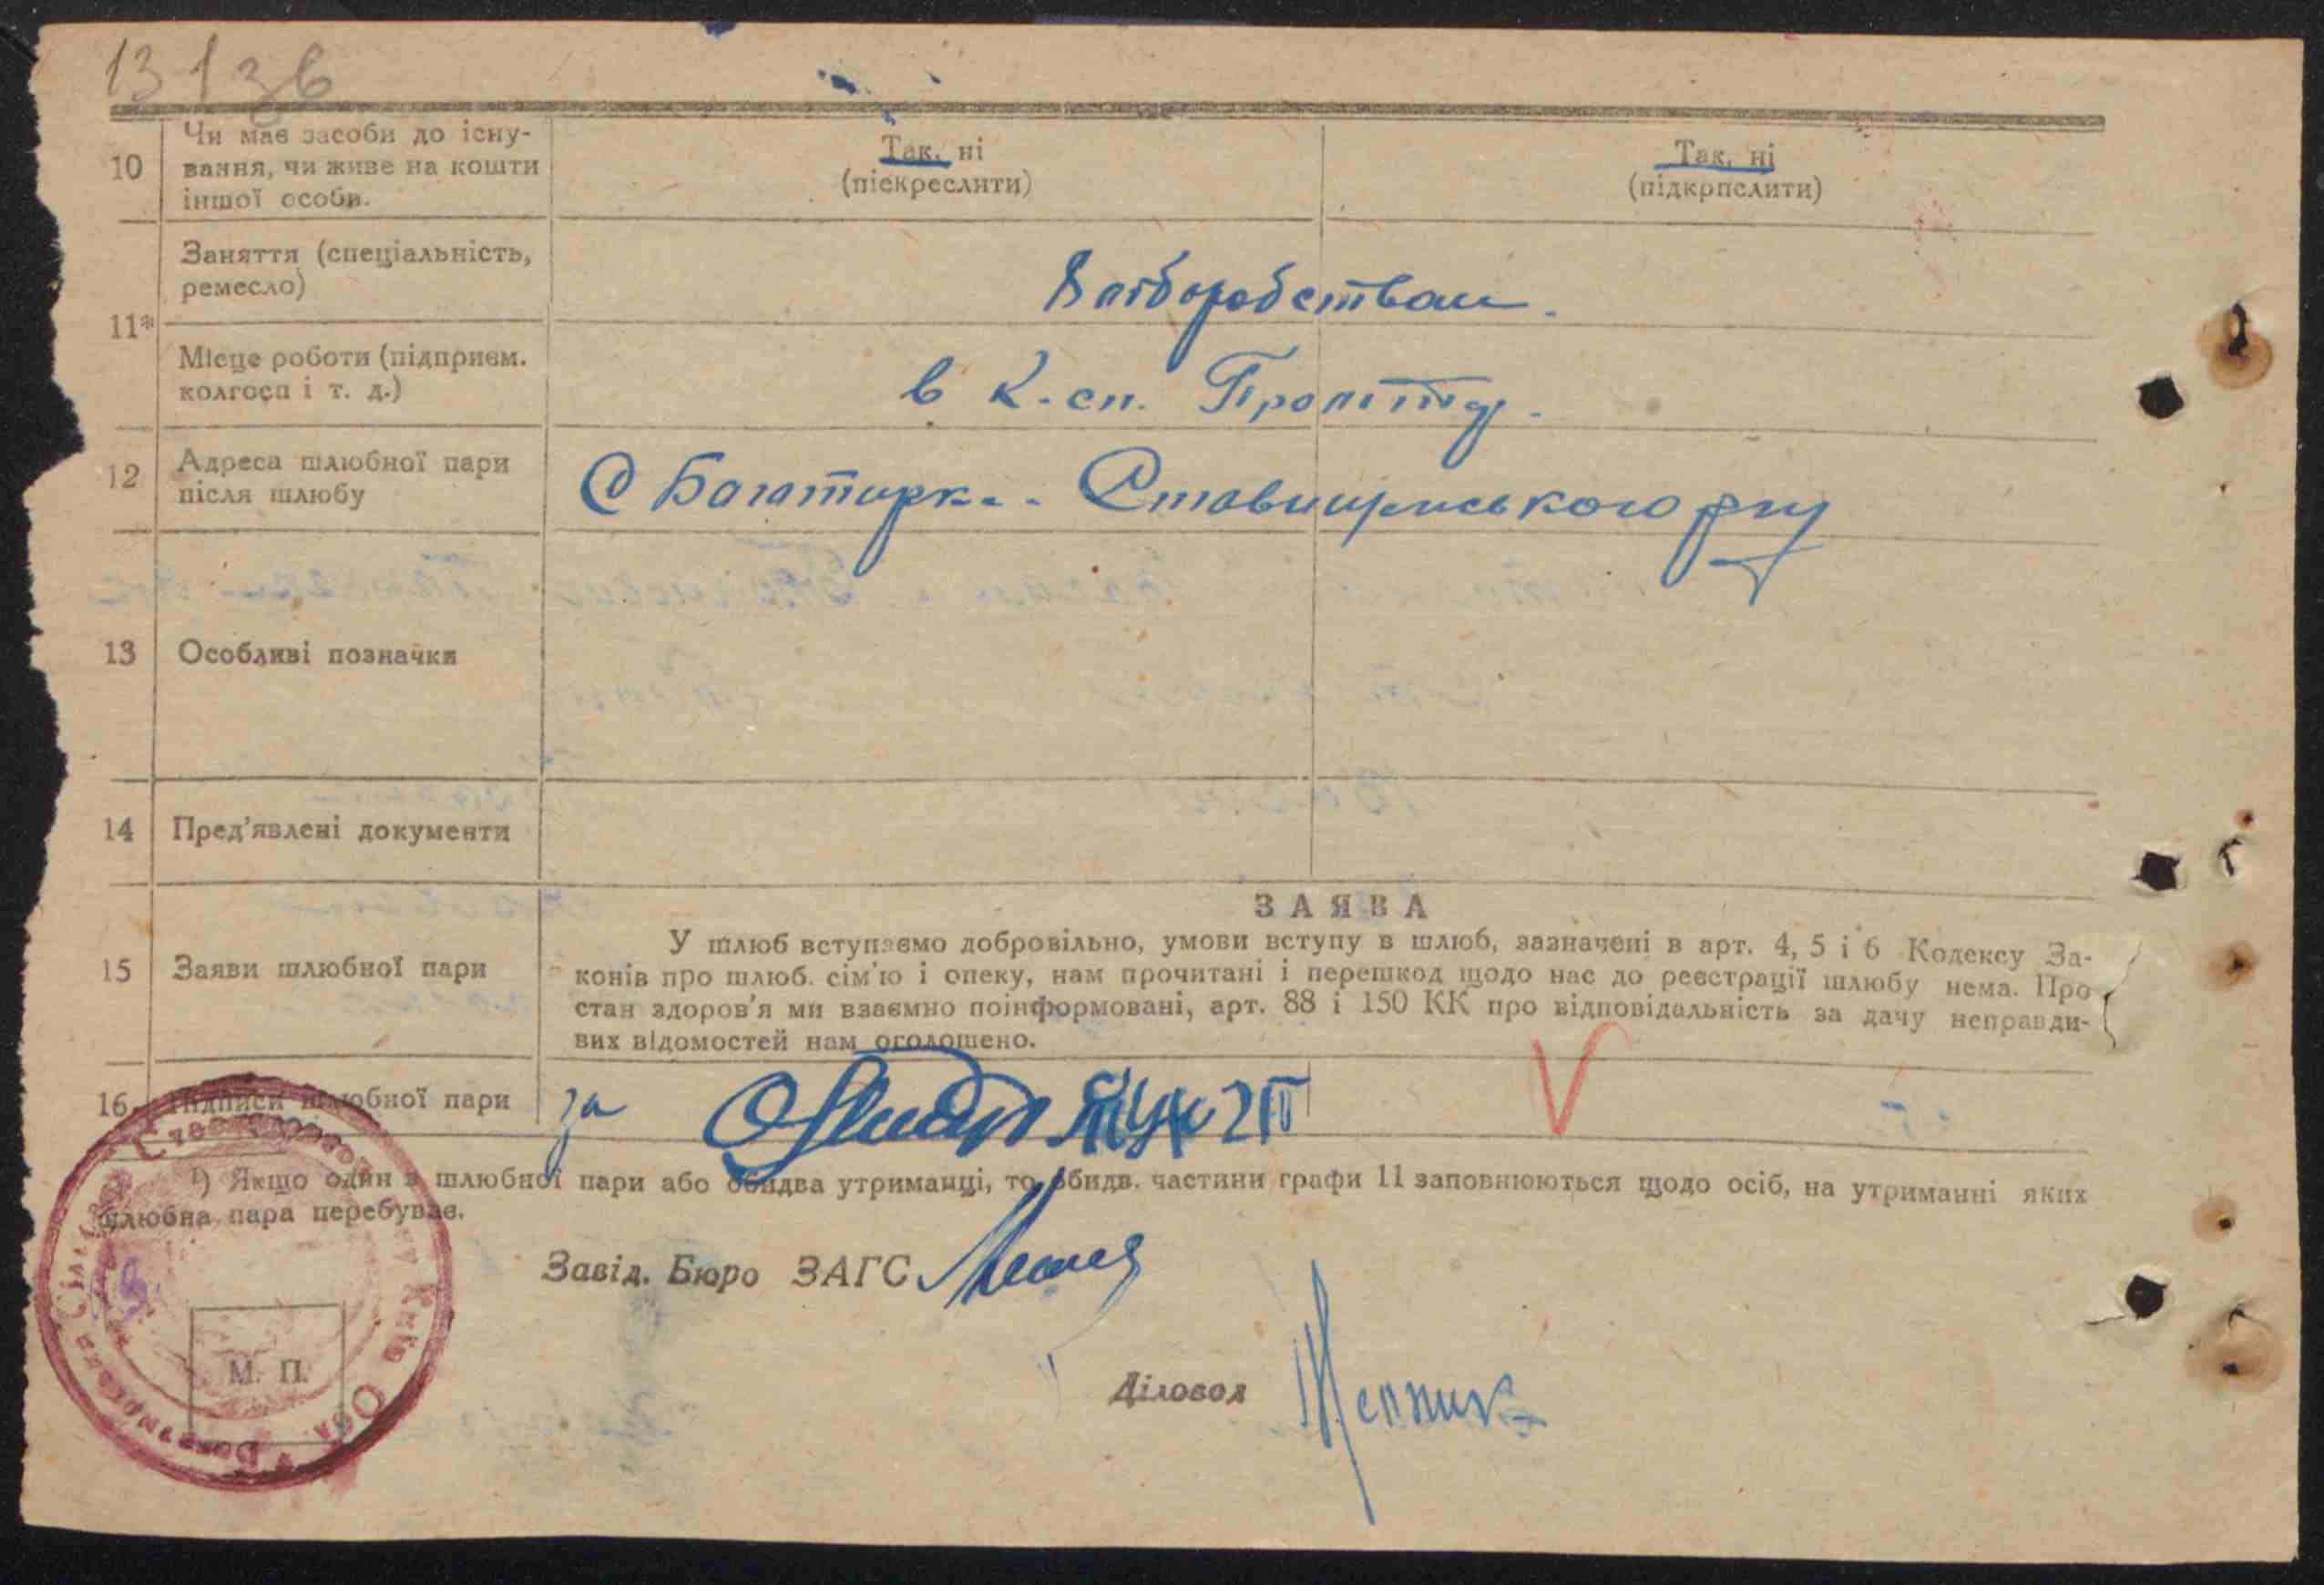 13 136
10
Чи має засоби до існу-
вання, чи живе на кошти
іншої особи.
Так, ні
(піекреслити)
Так, ні
(підкрпслити)
11*
Заняття (спеціальність,
ремесло)
Хліборобством.
Місце роботи (підприєм.
колгосп і т. д.)
в к-сп.
12
Адреса шлюбної пари
після шлюбу
С Багатирка. Ставищенського р-ну
13
Особливі позначки
14
Пред'явлені документи
15
Заяви шлюбної пари
ЗАЯВА
У шлюб вступаємо добровільно, умови вступу в шлюб, зазначені в арт. 4, 5 і 6 Кодексу За-
конів про шлюб. сім'ю і опеку, нам прочитані і перешкод щодо нас до реєстрації шлюбу нема. Про
стан здоров'я ми взаємно поінформовані, арт. 88 і 150 КК про відповідальність за дачу неправди-
вих відомостей нам оголошено.
16
Підписи шлюбної пари
за
¹) Якщо один з шлюбної пари або обидва утриманці, то обидв. частини графи 11 заповнюються щодо осіб, на утриманні яких
шлюбна пара перебуває.
Завід. Бюро ЗАГС
М. П.
Діловод